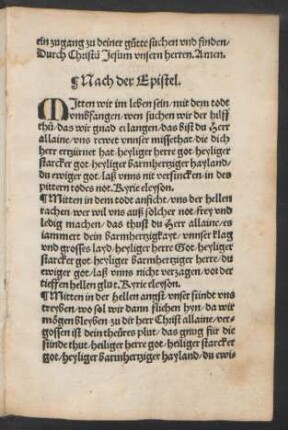 ein zugang zu deiner gůtte suchen vnd finden/
Durch Christū Jesum vnsern herren. Amen.
¶Nach der Epistel.
MItten wir im leben sein/mit dem todt
vmbfangen/wen suchen wir der hilff
thů/das wir gnad erlangen/das bist du Herr
allaine/vns rewet vnnser missethat/die dich
herr ertzürnet hat/heyliger herre got/heyliger
starcker got/heyliger barmhertziger hayland/
du ewiger got/laß vnns nit versincken/in des
pittern todes not. Kyrie eleyson.
¶Mitten in dem todt anficht/vns der hellen
rachen/wer wil vns auß solcher not/frey vnd
ledig machen/das thust du Herr allaine/es
iammert dein barmhertzigkayt/vnnser klag
vnd grosses layd/heyliger Herre Got/heyliger
starcker got/heyliger barmhertziger herre/du
ewiger got/laß vnns nicht verzagen/vor der
tieffen hellen glut. Kyrie eleyson.
¶Mitten in der hellen angst/vnser sünde vns
treyben/wo sol wir dann fliehen hyn/da wir
mögen bleyben/zu dir herr Christ allaine/ver/
gossen ist dein theüres plut/das gnug für die
sünde thut/heiliger herre got/heiliger starcker
got/heyliger barmhertziger hayland/du ewi/